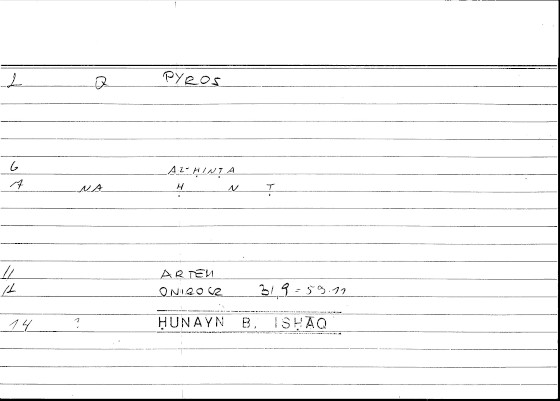 1 Q PYROS
6 AL-ḤINṬA
7 NA Ḥ N Ṭ
11 ARTEM
12 ONIROCR 31,9 = 59.11
14 ? ḤUNAYN B. ISḤĀQ